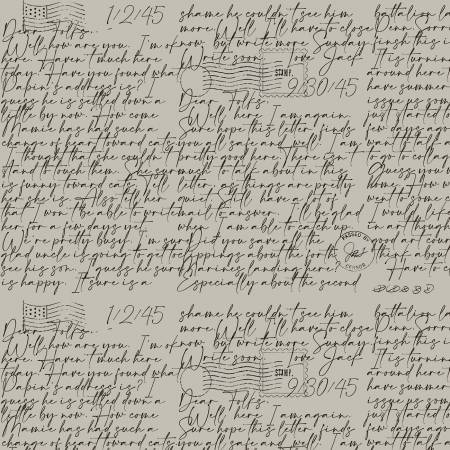 1/2/45
Dear Folks,
Well, how are you. I'm o
here. Haven't much here
today. Have you found what
address is?
guess he is settled down a
little by now. How come
Mamie has had such a
change of heart toward cats
I though that she couldn't
stand to touch them. She sure
is funny toward cats. Tell
her she is. Also tell her
that I won't be able to write
her for a few days yet.
We're pretty busy. I'm sure
glad uncle is going to get to
see his son. I guess he sure
is happy. It sure is a
shame he couldn't see him
more. Well, I'll have to close
now, but write more Sunday.
Write soon Love Jack
STAMP.
9/30/45
Dear Folks,
Well, here I am again.
Sure hope this letter finds
you all safe and well. I am
pretty good here. There isn't
much to talk about in this
letter, as things are pretty
quiet. Still have a lot of
mail to answer. I'll be glad
when I am able to catch up.
Did you save all the
clippings about the forth
Marines landing here
Especially about the second
PASSED BY
CENSOR
battalion la
Denn. Sorr
finish this i
It is turnin
around here t
have summer
issue us som
just started to
few days ago
want to go to collag
Guess you
home. How w
went to some c
I would lik
in art though
good art cour
think.
Have to c
1/2/45
Dear Folks,
Well, how are you. I'm o
here. Haven't much here
today. Have you found what
address is?
guess he is settled down a
little by now. How come
Mamie has had such a
change of heart toward cats
shame he couldn't see him
more. Well, I'll have to close
now, but write more Sunday.
Write soon Love Jack
STAMP.
9/30/45
Dear Folks,
Well, here I am again.
Sure hope this letter finds
you all safe and well. I am
battalion la
Denn. Sorr
finish this i
It is turnin
around here t
have summer
issue us som
just started to
few days ago
want to